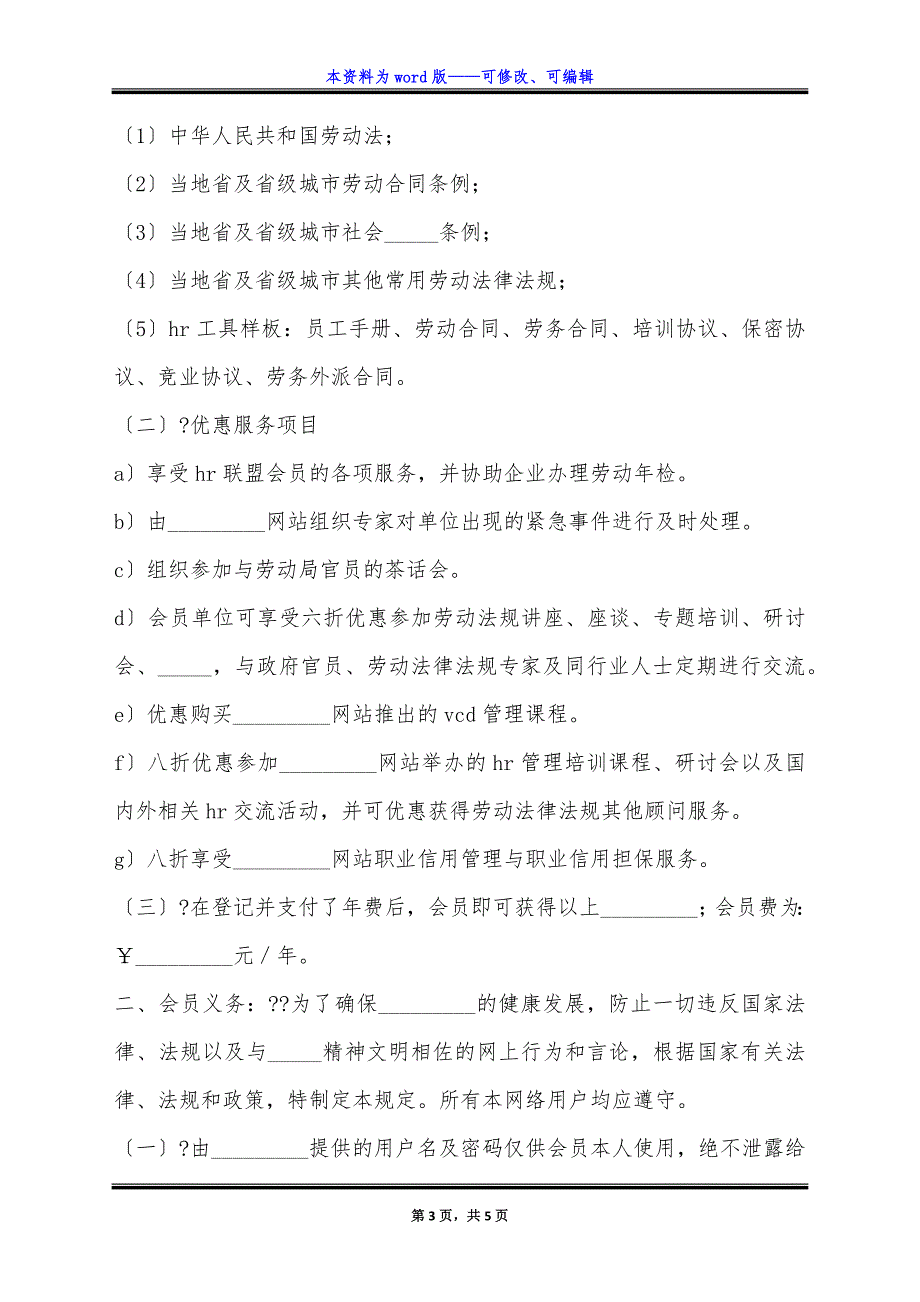 本资料为 word 版——可修改、可编辑
〔1〕中华人民共和国劳动法；
〔2〕当地省及省级城市劳动合同条例；
〔3〕当地省及省级城市社会_____条例；
〔4〕当地省及省级城市其他常用劳动法律法规；
〔5〕hr 工具样板：员工手册、劳动合同、劳务合同、培训协议、保密协
议、竞业协议、劳务外派合同。
〔二〕?优惠服务项目
a〕享受 hr 联盟会员的各项服务，并协助企业办理劳动年检。
b〕由_________网站组织专家对单位出现的紧急事件进行及时处理。
c〕组织参加与劳动局官员的茶话会。
d〕会员单位可享受六折优惠参加劳动法规讲座、座谈、专题培训、研讨
会、_____，与政府官员、劳动法律法规专家及同行业人士定期进行交流。
e〕优惠购买_________网站推出的 vcd 管理课程。
f〕八折优惠参加_________网站举办的 hr 管理培训课程、研讨会以及国
内外相关 hr 交流活动，并可优惠获得劳动法律法规其他顾问服务。
g〕八折享受_________网站职业信用管理与职业信用担保服务。
〔三〕?在登记并支付了年费后，会员即可获得以上_________；会员费为：
￥_________元／年。
二、会员义务：??为了确保_________的健康发展，防止一切违反国家法
律、法规以及与_____精神文明相佐的网上行为和言论，根据国家有关法
律、法规和政策，特制定本规定。所有本网络用户均应遵守。
〔一〕?由_________提供的用户名及密码仅供会员本人使用，绝不泄露给
第 3 页，共 5 页